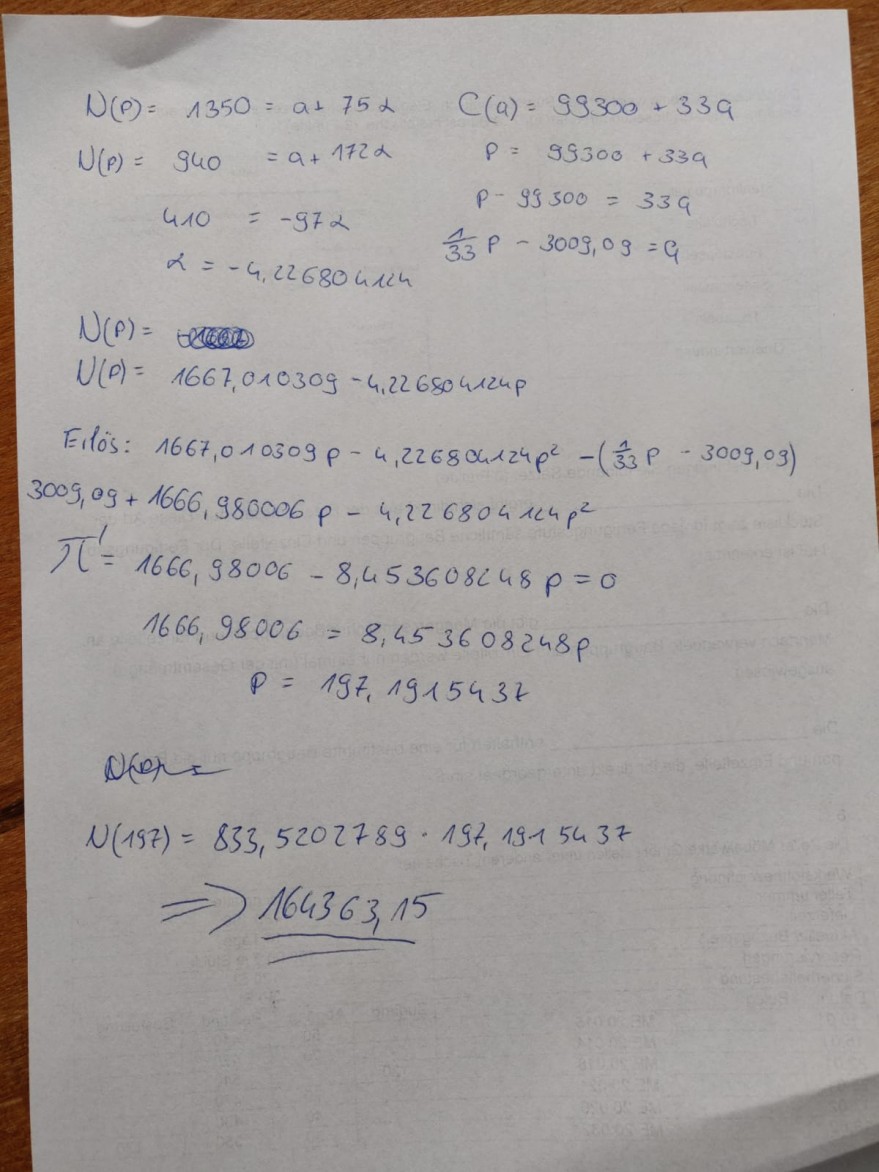 N(P) = 1350 = a + 75α
N(P) = 940 = a + 172α
410 = -97α
α = -4,226804124
C(q) = 99300 + 33q
P = 99300 + 33q
P - 99300 = 33q
1/33 P - 3009,09 = q
N(P) =
N(P) = 1667,010309 - 4,226804124p
Erlös: 1667,010309p - 4,226804124p² - (1/33 P - 3009,09)
3009,09 + 1666,980006p - 4,226804124p²
π' = 1666,98006 - 8,453608248p = 0
1666,98006 = 8,453608248p
P = 197,1915437
N(197) = 833,5202789 · 197,1915437
⇒ 164363,15